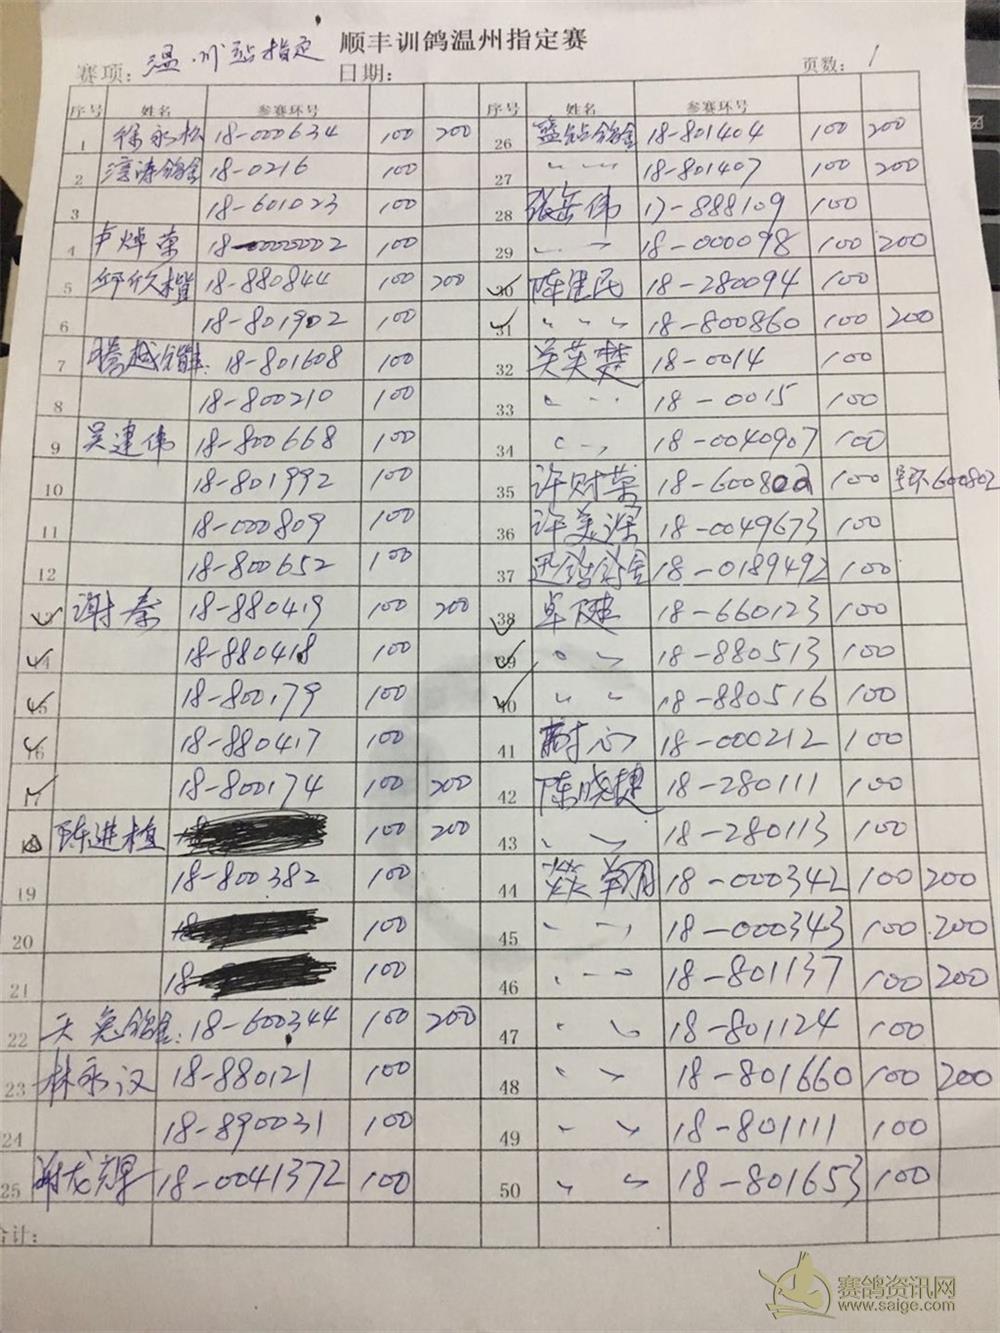 顺丰训鸽温州指定赛
赛项: 温州站指定 日期: 页数: 1
序号 姓名 参赛环号 序号 姓名 参赛环号
1 徐永松 18-000634 100 200 26 蓝钻鸽舍 18-801404 100 200
2 淳涛鸽舍 18-0216 100 27 〃 〃 18-801407 100 200
3 18-601023 100 28 张岳伟 17-888109 100
4 卢焯荣 18-0000002 100 29 〃 〃 18-000098 100 200
5 邱欣楷 18-880844 100 200 30 陈建民 18-280094 100
6 18-801902 100 31 〃 〃 〃 18-800860 100 200
7 腾越鸽车: 18-801608 100 32 吴英楚 18-0014 100
8 18-800210 100 33 〃 〃 18-0015 100
9 吴建伟 18-800668 100 34 〃 〃 18-0040907 100
10 18-801992 100 35 许财荣 18-600802 100 号环600802
11 18-000809 100 36 许美深 18-0049673 100
12 18-800652 100 37 迅皓鸽舍 18-0189492 100
13 谢秦 18-880419 100 200 38 卓健 18-660123 100
14 18-880418 100 39 〃 〃 18-880513 100
15 18-800179 100 40 〃 〃 18-880516 100
16 18-880417 100 41 耐心 18-000212 100
17 18-800174 100 200 42 陈晓捷 18-280111 100
陈进植 18 100 200 43 〃 〃 18-280113 100
19 18-800382 100 44 燚翔 18-000342 100 200
20 18 100 45 〃 〃 18-000343 100 200
21 18- 100 46 〃 〃 18-801137 100 200
22 天急鸽舍: 18-600344 100 200 47 〃 〃 18-801124 100
23 林永汉 18-880121 100 48 〃 〃 18-801660 100 200
24 18-890031 100 49 〃 〃 18-801111 100
25 谢龙辉 18-0041372 100 50 〃 〃 18-801653 100
合计:
赛鸽资讯网
www.saige.com